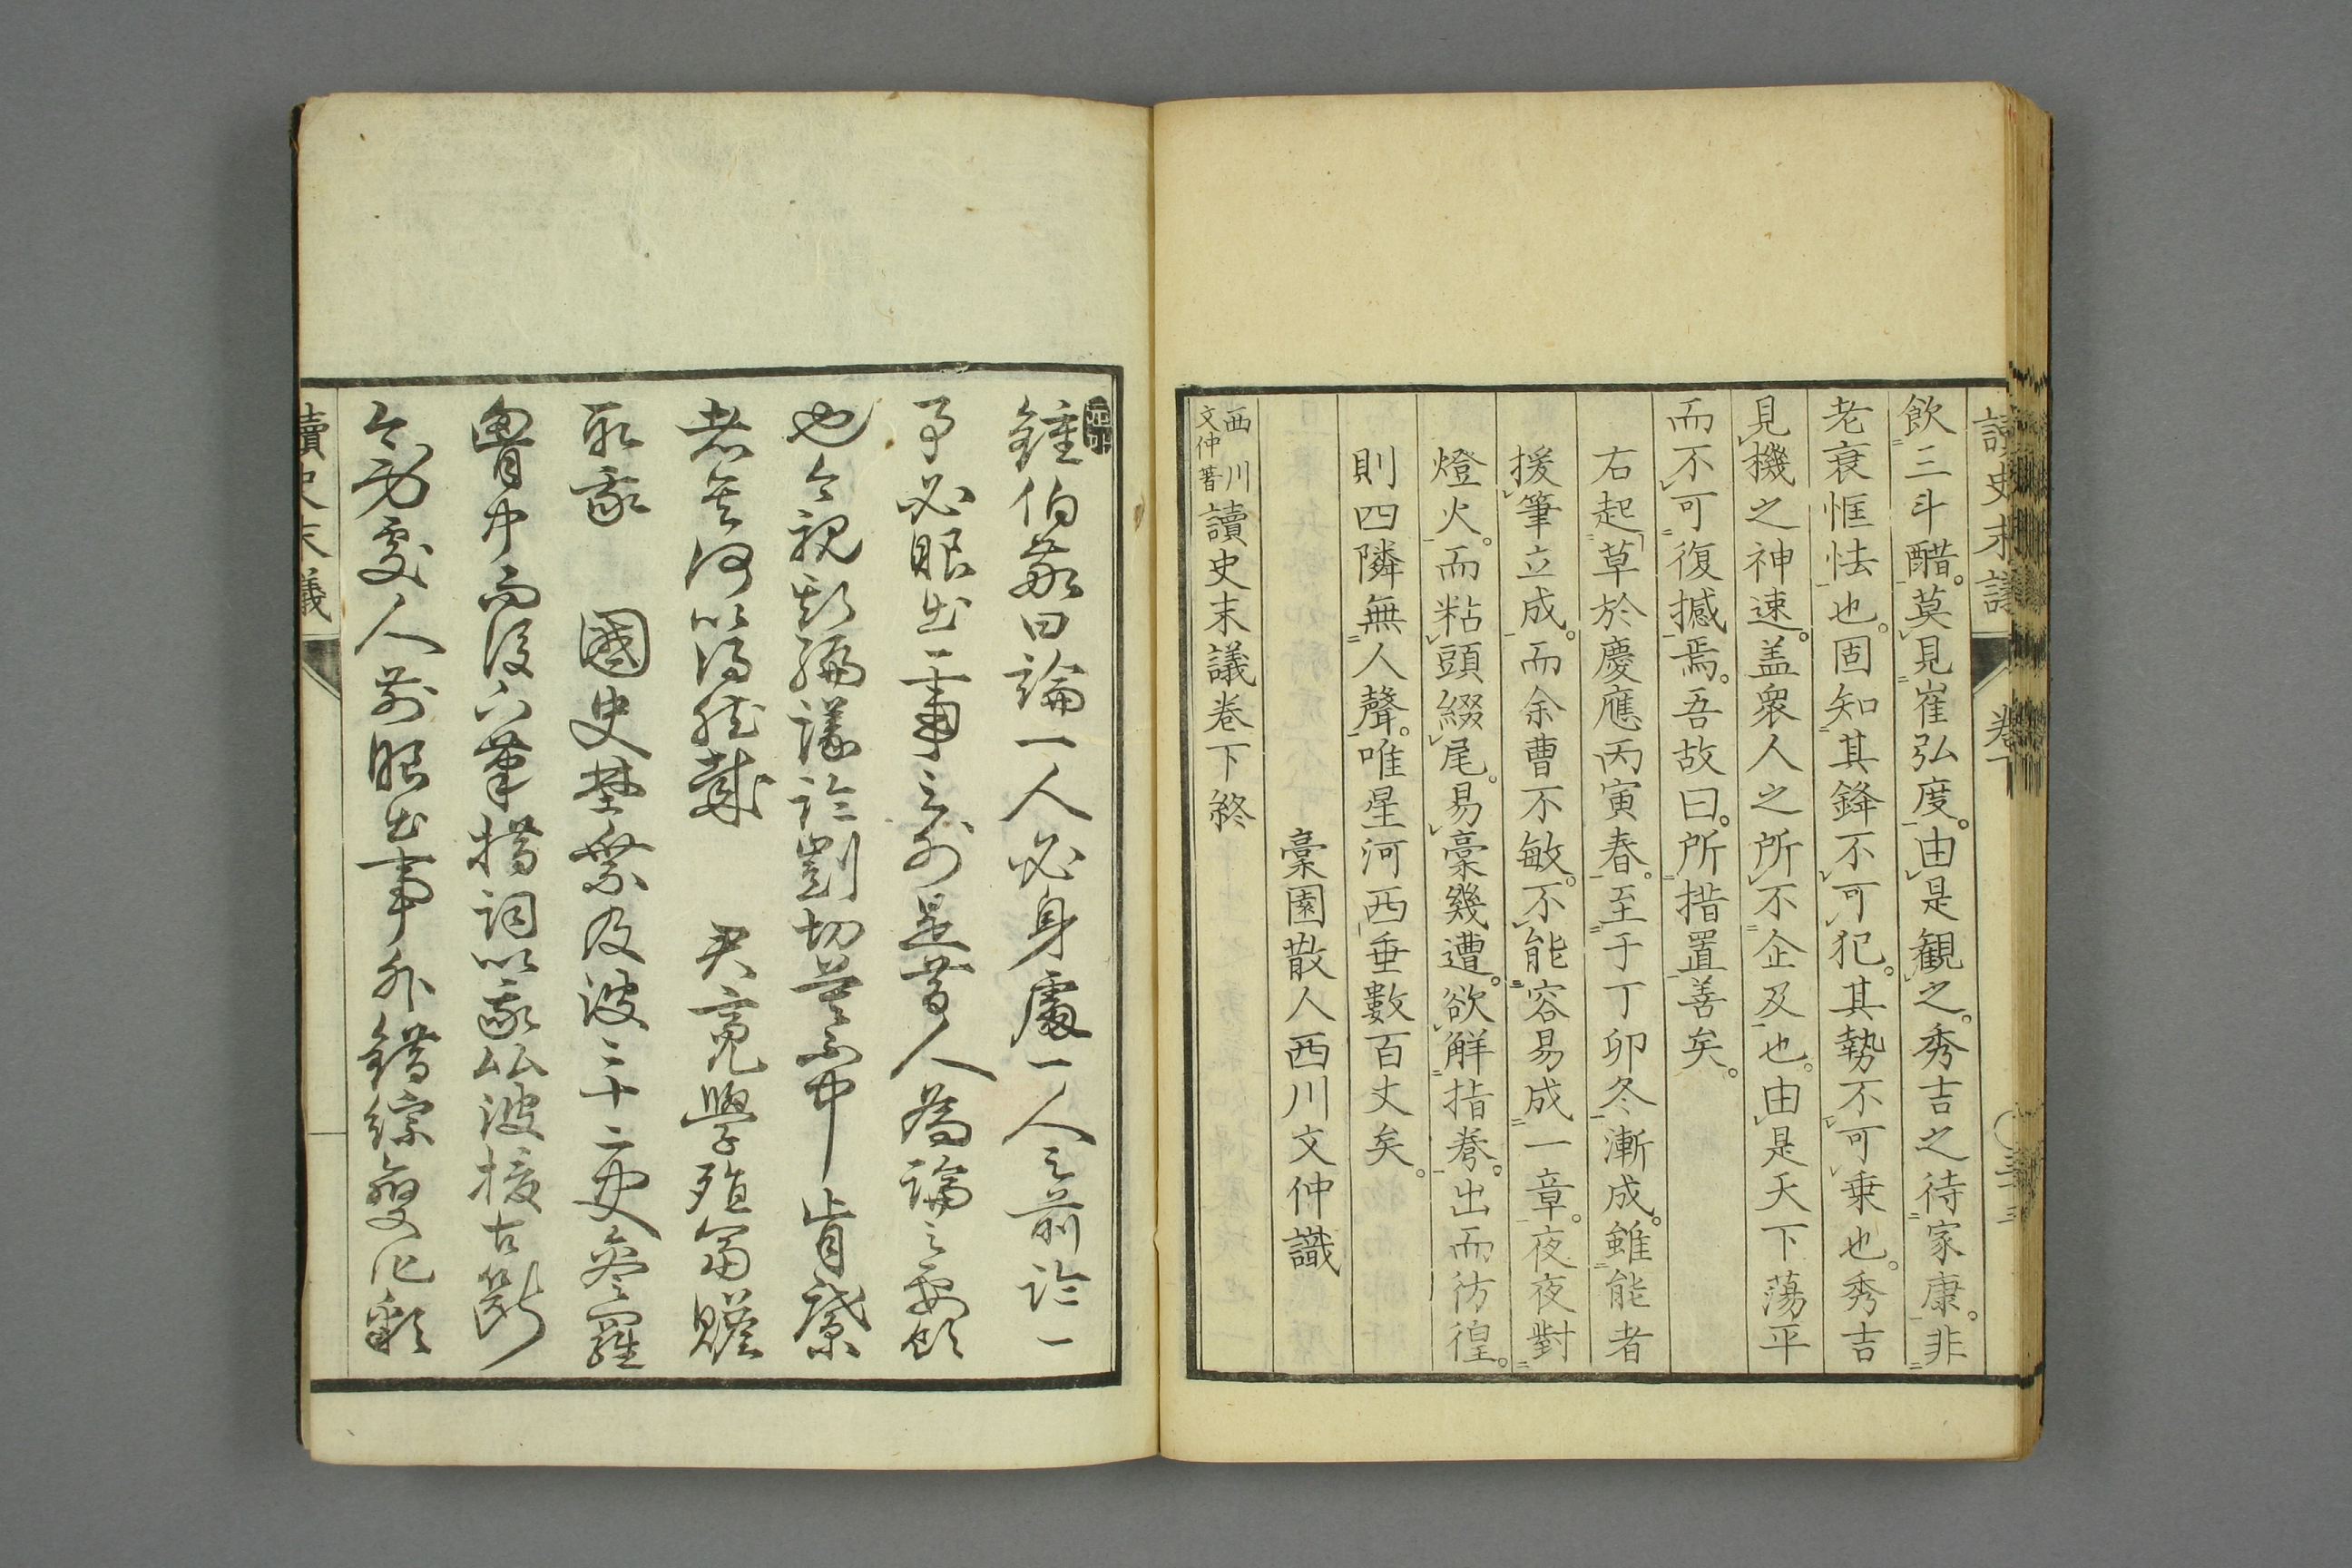 讀史末議 卷下
飲三斗醋。莫見崔弘度。由是観之。秀吉之待家康。非
老衰恇怯也。固知其鋒不可犯。其勢不可乗也。秀吉
見機之神速。盖衆人之所不企及也。由是天下蕩平
而不可復撼焉。吾故曰。所措置善矣。
右起草於慶應丙寅春。至于丁卯冬漸成。雖能者
援筆立成。而余曹不敏。不能容易成一章。夜夜對
燈火。而粘頭綴尾。易稾幾遭。欲解指劵。出而彷徨。
則四隣無人聲。唯星河西垂數百丈矣。
稾園散人西川文仲識
西川文仲著 讀史末議卷下終
鍾伯敬曰論一人必身處一人之前論一
事必眼出一事之外是昔人為論之要
也今視斯編議論剴切其中肯綮
者奚何以得然哉 君竟學殖富贍
取裁 國史野乗及波二十二史參羅
胷中而後下筆措詞以我比波援古斷
今身處人前眼出事外錯綜變化
讀史末議